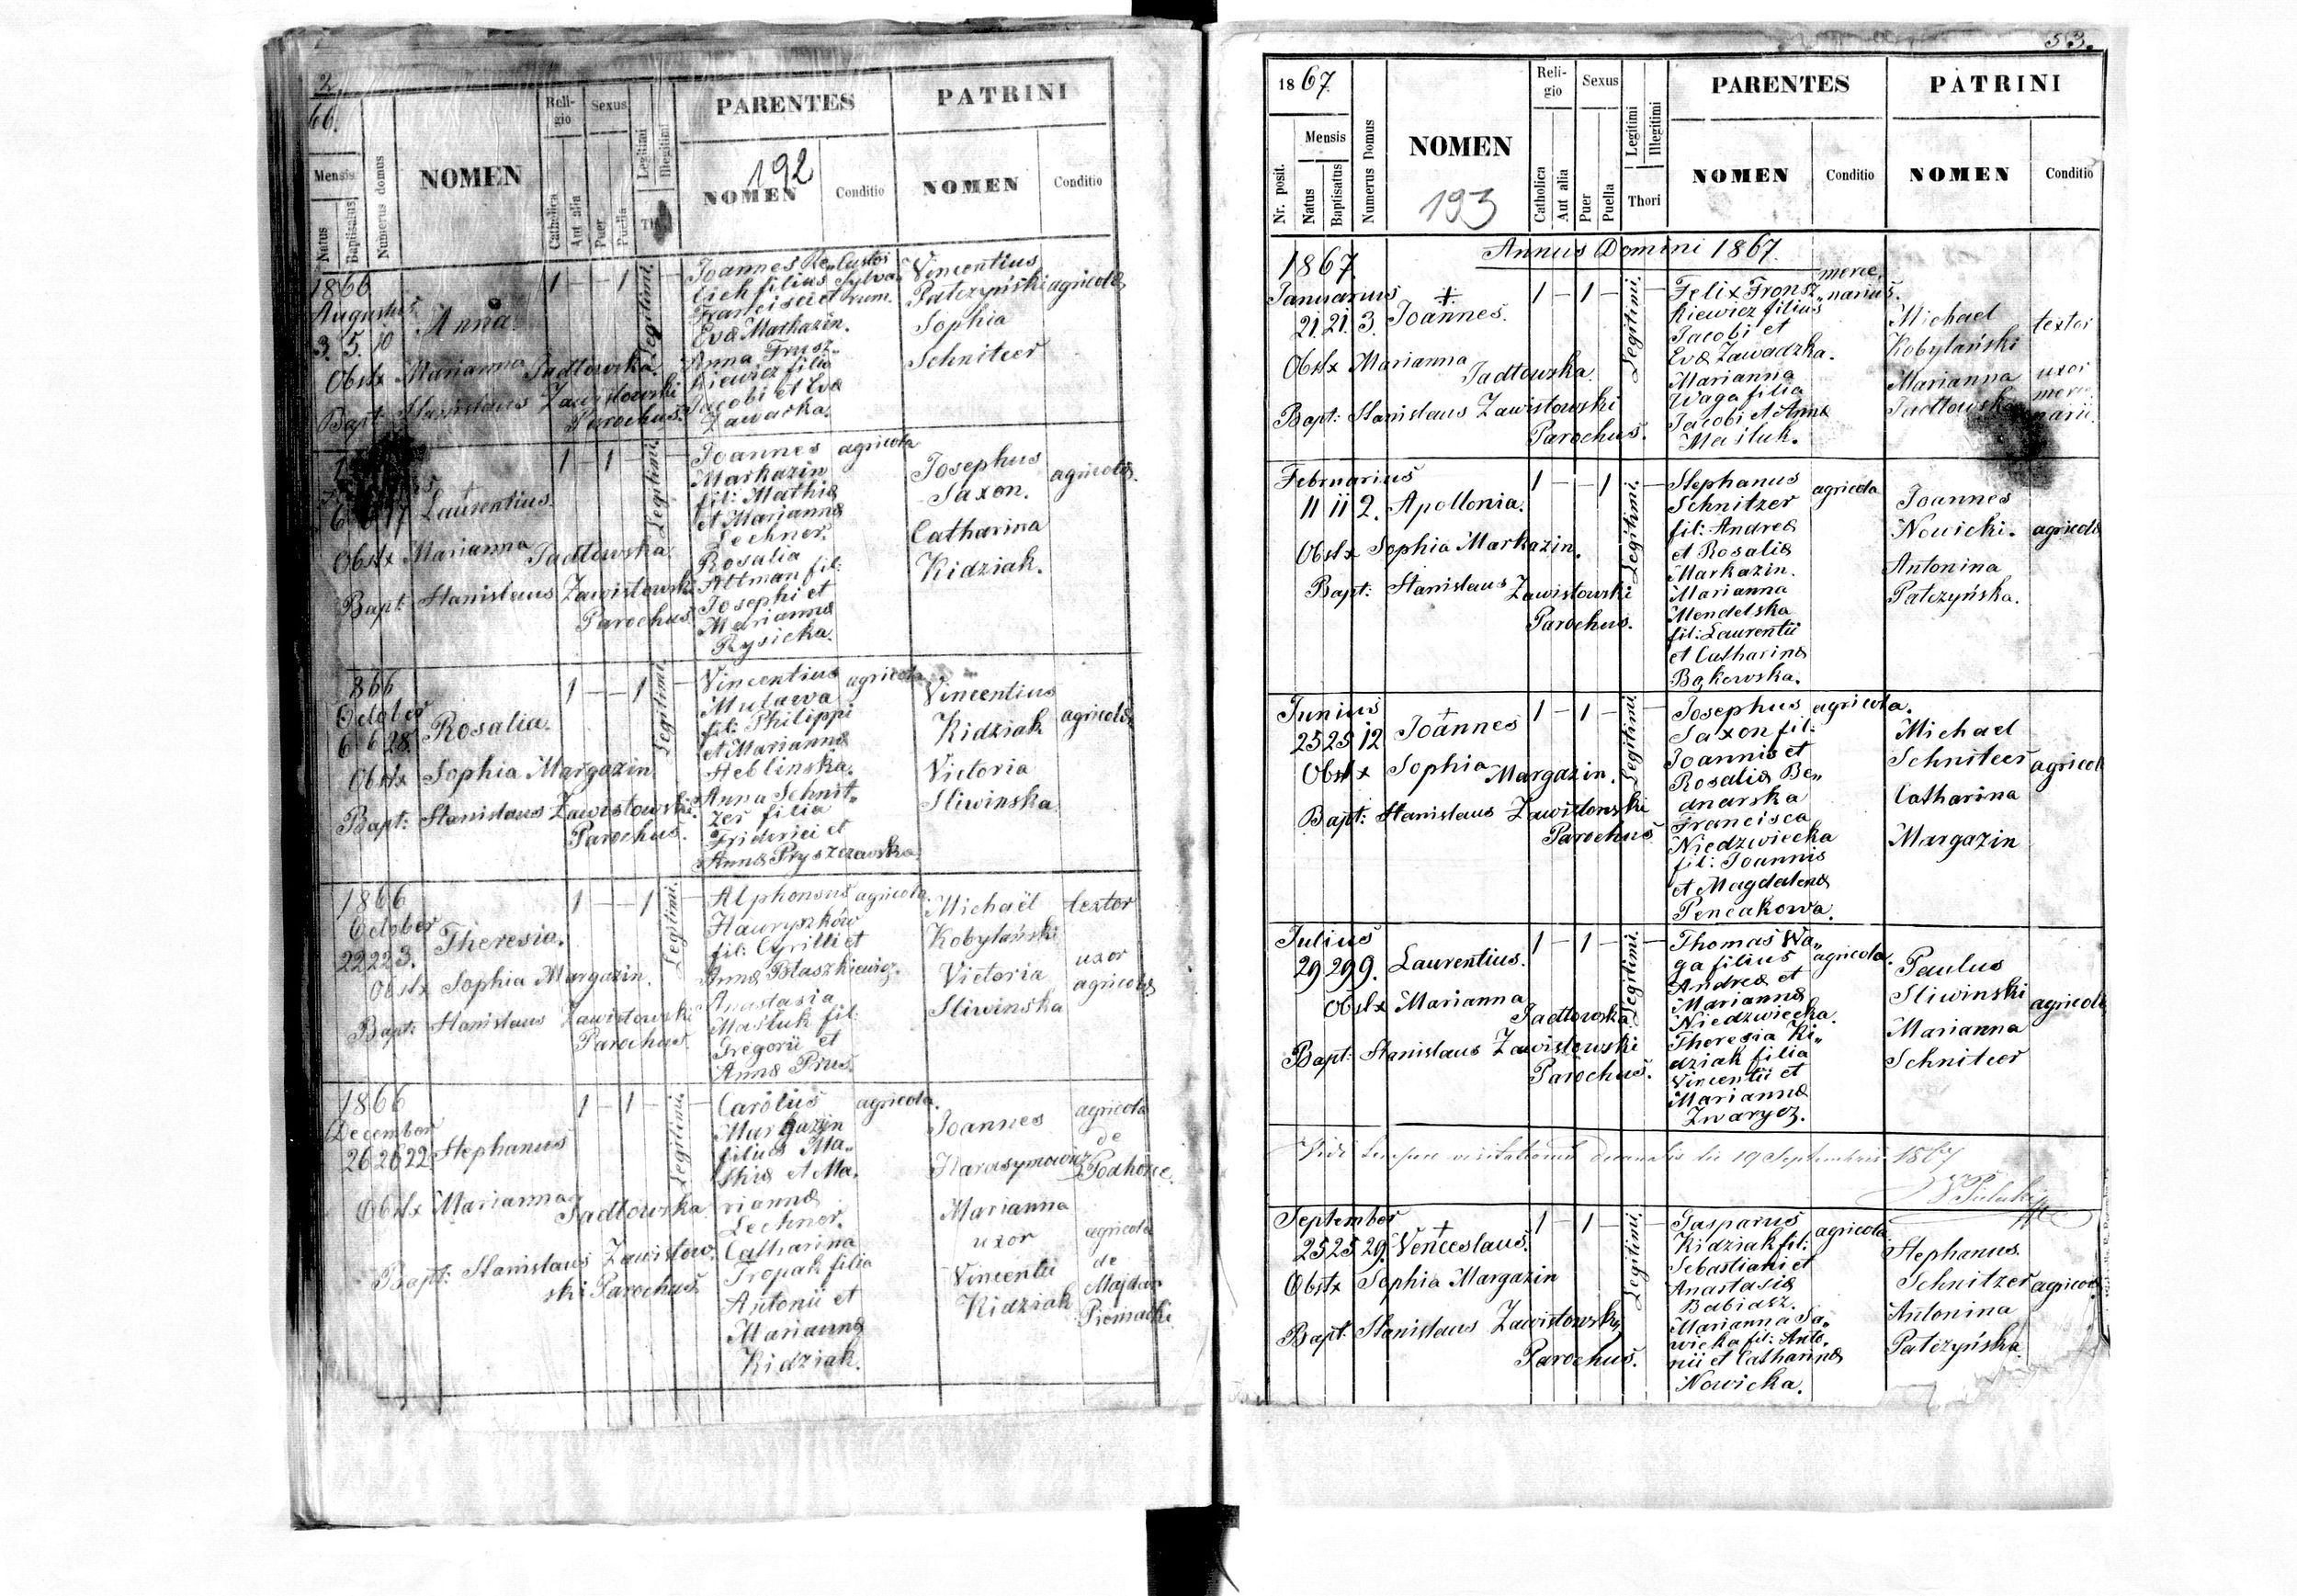 2.
66.
Mensis
Natus
Baptisatus
Numerus domus
NOMEN
Religio
Catholica
Aut alia
Sexus
Puer
Puella
Legitimi
Illegitimi
PARENTES
192
NOMEN
Conditio
PATRINI
NOMEN
Conditio
1866
Augustus
3. 5. 10
Anna
1 — — 1 —
Legitimi.
Joannes
Custos
Sylva
rum.
filius
Francisci et
Evæ Markazin.
Anna Frusz„
kiewicz filia
Jacobi et Evæ
Zawacka.
Vincentius
Patczyński agricola
Sophia
Schnitcer
Obstx Marianna Jadtowska.
Bapt: Stanislaus Zawistowski
Parochus.
17 Laurentius.
1 — 1 —
Legitimi.
Joannes agricola
Markazin
fil: Mathiæ
et Mariannæ
Lechner.
Rosalia
Altman fil:
Josephi et
Mariannæ
Rysicka.
Josephus
Saxon. agricola.
Catharina
Kidziak.
Obstx Marianna Jadtowska
Bapt: Stanislaus Zawistowski
Parochus.
866
October
6 6 28. Rosalia.
1 — — 1 —
Legitimi.
Vincentius agricola
Mulawa
fil: Philippi
et Mariannæ
Heblinska.
Anna Schnit„
zer filia
Friderici et
Annæ Pryszczawska
Vincentius
Kidziak agricola
Victoria
Sliwinska
Obstx Sophia Margazin
Bapt: Stanislaus Zawistowski
Parochus.
1866
October
22 22 3. Theresia.
1 — — 1 —
Legitimi.
Alphonsus agricola.
Hawryszków
fil: Cyrilli et
Annæ Btaszkiewicz.
Anastasia
Mastuk fil:
Gregorii et
Annæ Prus.
Michaël textor
Kobylański
Victoria uxor
Sliwinska agricolæ
Obstx Sophia Margazin.
Bapt: Stanislaus Zawistowski
Parochus.
1866
December
26 26 22 Stephanus
1 — 1 —
Legitimi.
Carolus agricola.
Margazin
filius Ma„
thiæ et Ma„
riannæ
Lechner.
Catharina
Tropak filia
Antonii et
Mariannæ
Kidziak.
Joannes agricola
de
Harasymowicz Podhorce.
Marianna
uxor agricola
Vincentii de
Kidziak Majdan
Pieniacki
Obstx Marianna Jadtowska
Bapt: Stanislaus Zawistow„
ski Parochus
53.
1867.
Nr. posit.
Mensis
Natus
Baptisatus
Numerus Domus
NOMEN
193
Religio
Catholica
Aut alia
Sexus
Puer
Puella
Legitimi
Illegitimi
Thori
PARENTES
NOMEN
Conditio
PATRINI
NOMEN
Conditio
1867.
Annus Domini 1867.
Januarius
21. 21. 3. Joannes.
1 — 1 —
Legitimi.
Felix Fronsz„
kiewicz filius
Jacobi et
Evæ Zawadzka.
Marianna
Waga filia
Jacobi et Annæ
Mastuk.
merce„
narius.
Michael
Kobylański textor
Marianna uxor
Jadtowska merce
narii.
Obstx Marianna Jadtowska.
Bapt: Stanislaus Zawistowski
Parochus.
Februarius
11 11 2. Apollonia.
1 — — 1 —
Legitimi.
Stephanus
Schnitzer agricola
fil: Andreæ
et Rosaliæ
Markazin.
Marianna
Mendelska
fil: Laurentii
et Catharinæ
Bąkowska.
Joannes
Nowicki. agricola
Antonina
Patczyńska.
Obstx Sophia Markazin.
Bapt: Stanislaus Zawistowski
Parochus.
Junius
25 25 12 Joannes
1 — 1 —
Legitimi.
Josephus agricola.
Saxon fil:
Joannis et
Rosaliæ Be„
dnarska
Francisca
Niedzwiecka
fil: Joannis
et Magdalenæ
Pencakowa.
Michael
Schnitcer agricola
Catharina
Margazin
Obstx Sophia Margazin.
Bapt: Stanislaus Zawistowski
Parochus
Julius
29 29 9. Laurentius.
1 — 1 —
Legitimi.
Thomas Wa„
ga filius agricola.
Andreæ et
Mariannæ
Niedzwiecka.
Theresia Ki„
dziak filia
Vincentii et
Mariannæ
Zwarycz.
Paulus
Sliwinski agricola
Marianna
Schnitcer
Obstx Marianna Jadtowska.
Bapt: Stanislaus Zawistowski
Parochus.
Vidi tempore visitationis decanalis die 19 Septembris 1867
September
25 25 29. Venceslaus.
1 — 1 —
Legitimi.
Gasparus agricola
Kidziak fil:
Sebastiani et
Anastasiæ
Babiasz.
Marianna Sa„
wicka fil: Anto„
nii et Catharinæ
Nowicka.
Stephanus
Schnitzer agricola
Antonina
Patczyńska.
Obstx Sophia Margazin
Bapt: Stanislaus Zawistowski
Parochus.